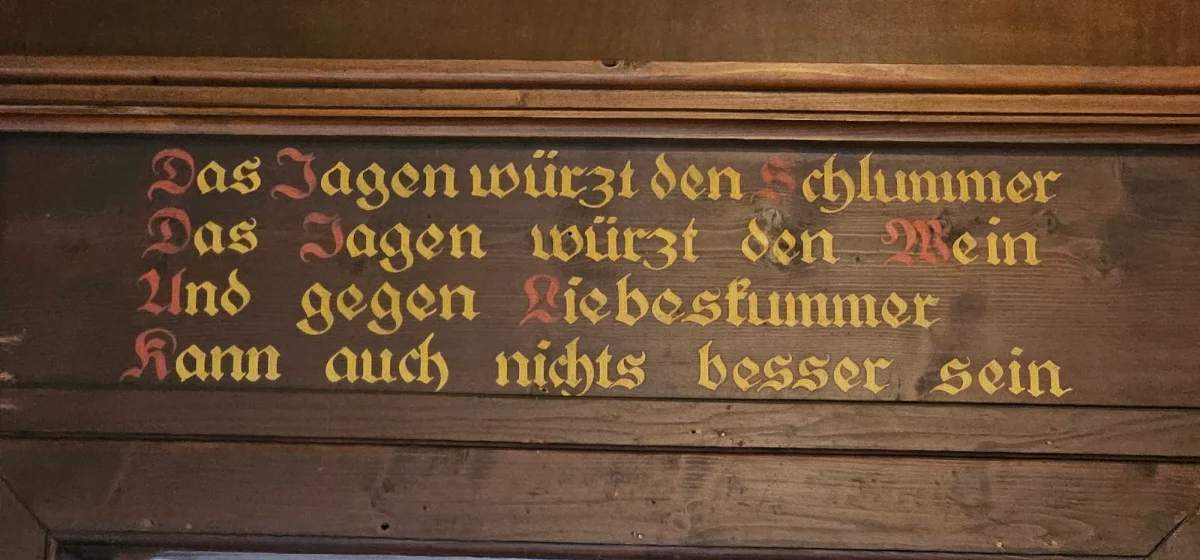 Das Jagen würzt den Schlummer
Das Jagen würzt den Wein
Und gegen Liebeskummer
Kann auch nichts besser sein